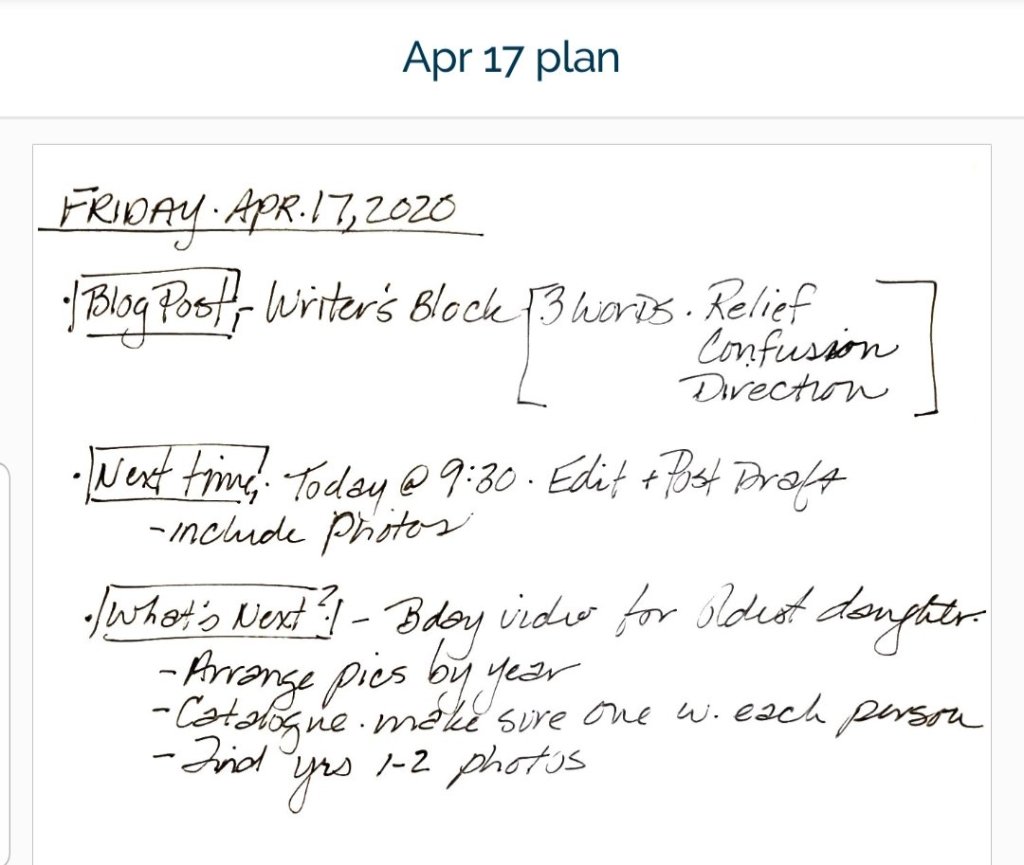 Apr 17 plan
FRIDAY. APR. 17, 2020
· Blog Post, - Writer's Block [3 words. Relief
Confusion
Direction]
· Next time. Today @ 9:30. Edit + Post Draft
- include photos
· What's Next? - Bday video for oldest daughter.
- Arrange pics by year
- Catalogue. make sure one w. each person
- Find yrs 1-2 photos